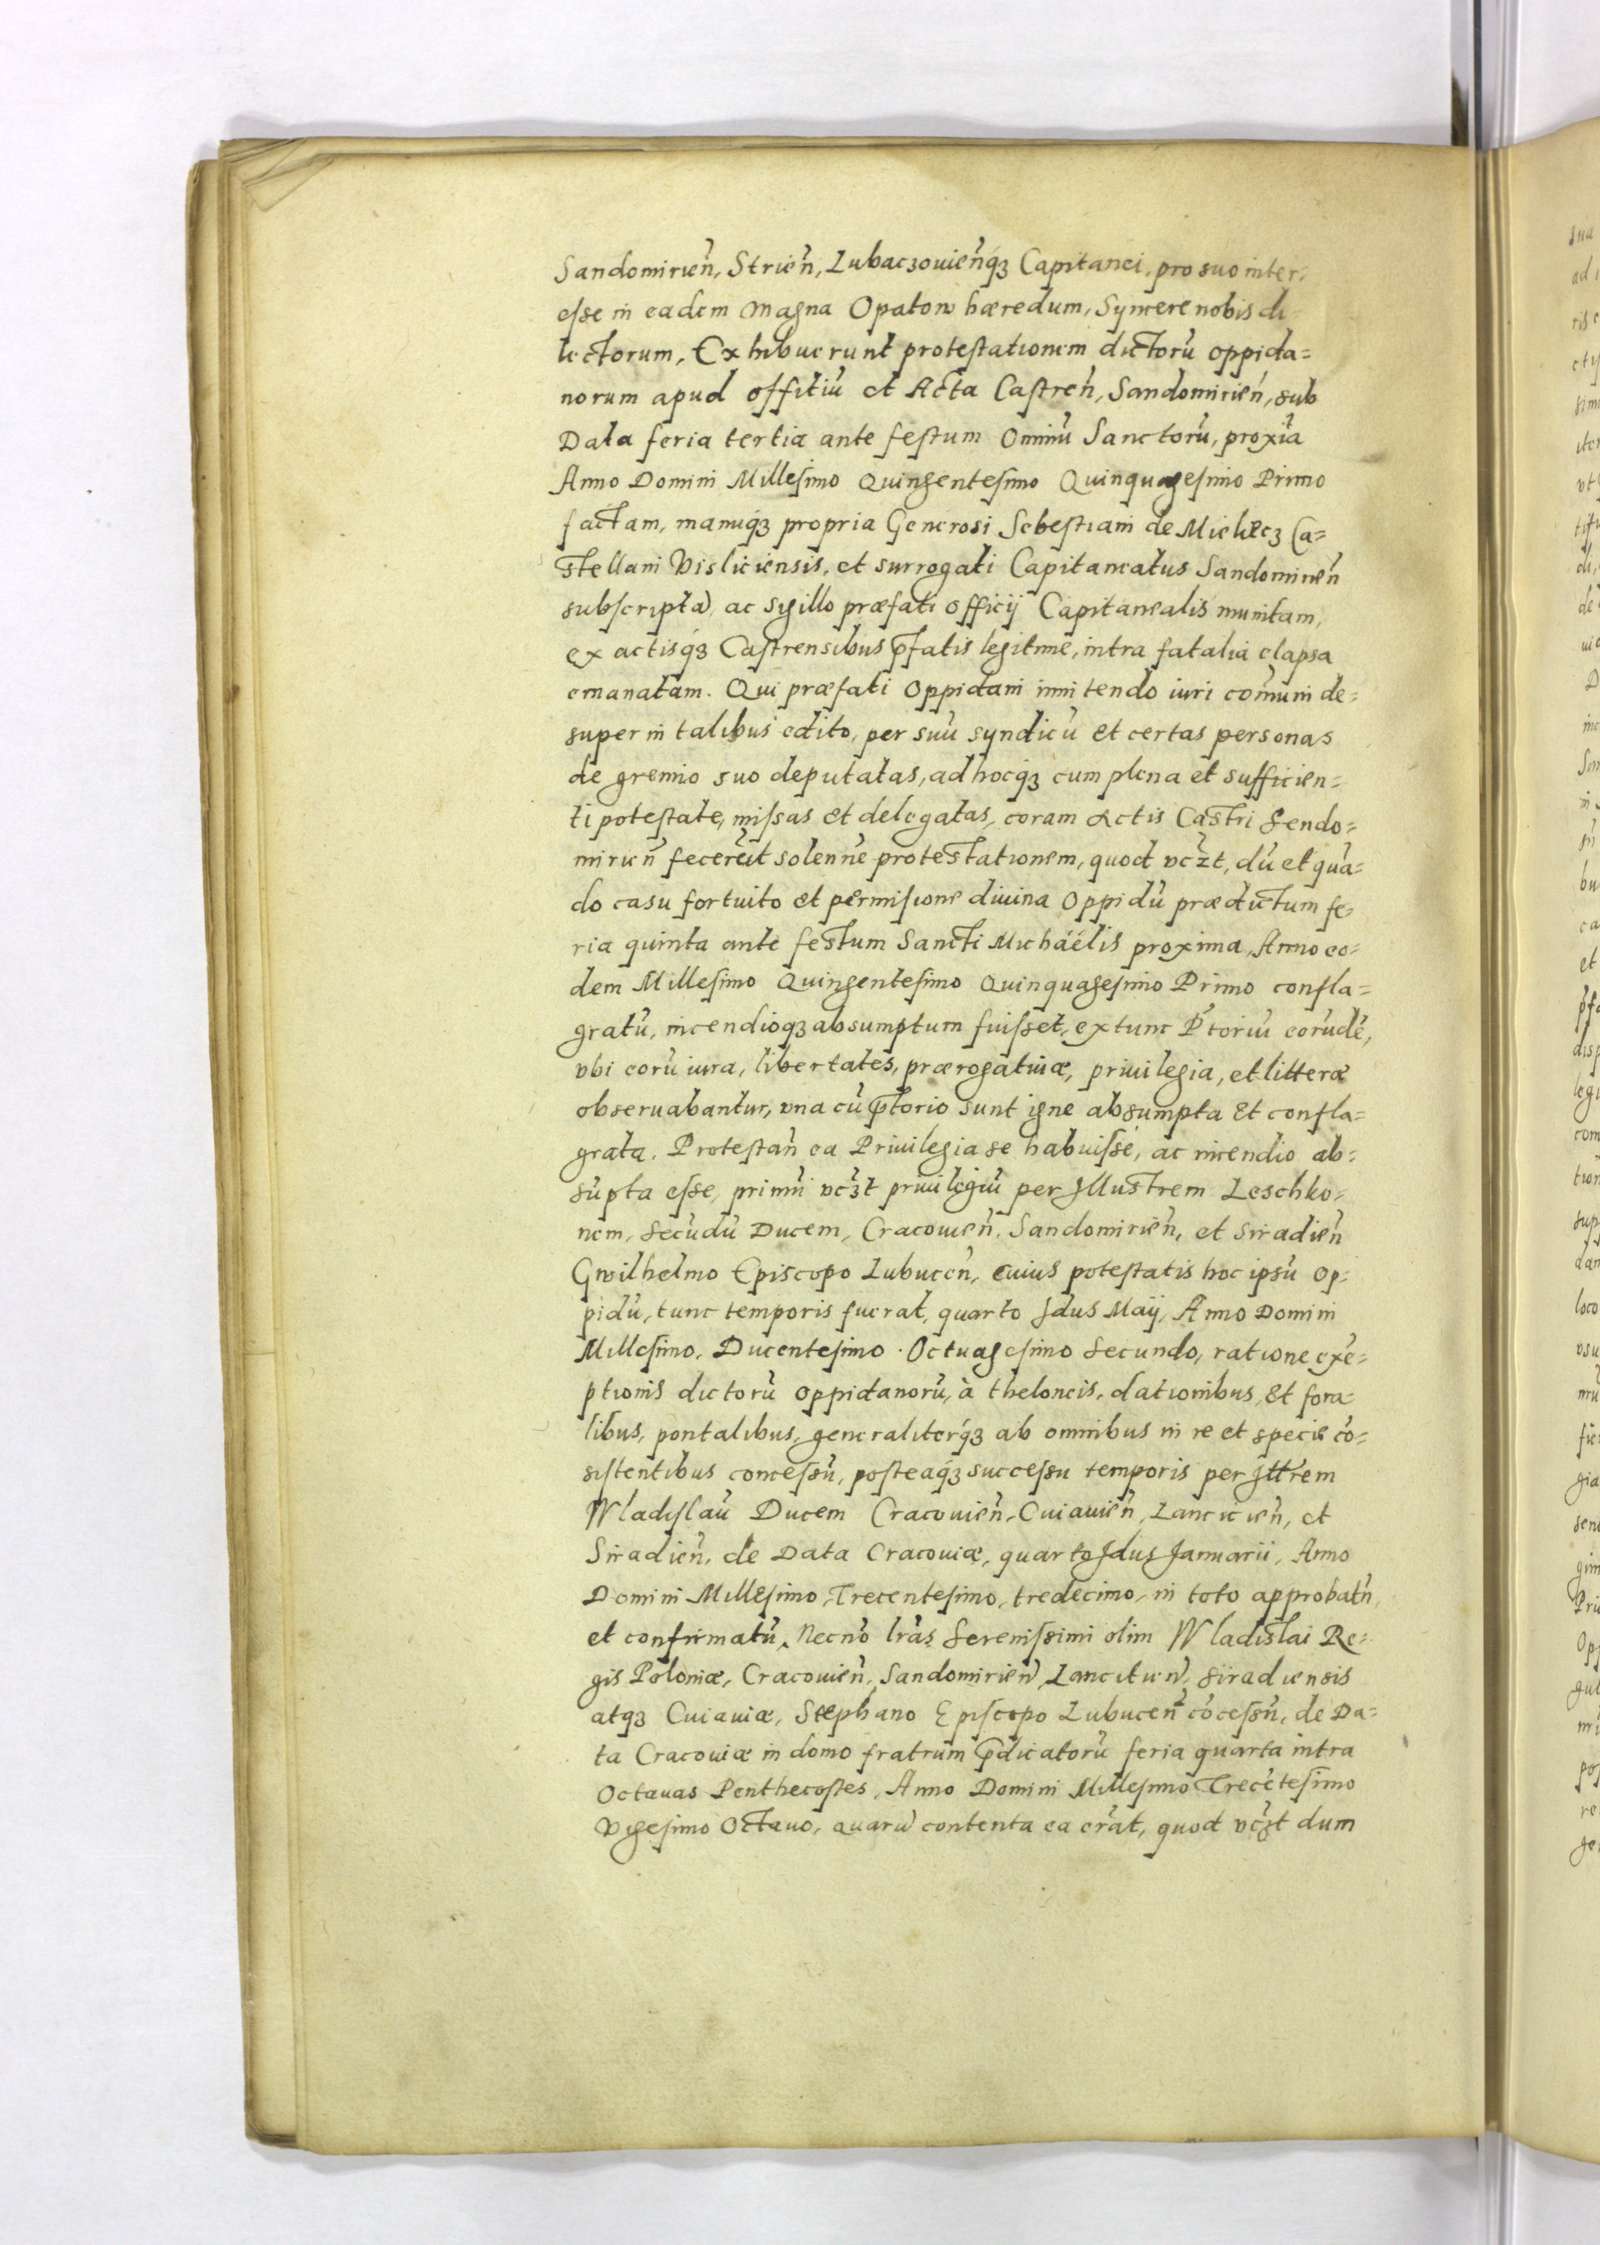 Sandomirien̄, Strien̄, Lubaczouien̄qȝ Capitanei, pro suo inter-
esse in eadem Magna Opatow hæredum, Syncere nobis di-
lectorum, Exhibuerunt protestationem dictorū oppida=
norum apud offitiū et Acta Castren̄, Sandomirien̄, sub
Data feria tertia ante festum Omniū Sanctorū, proxīa
Anno Domini Millesimo Quingentesimo Quinquagesimo Primo
factam, manuqȝ propria Generosi Sebestiani de Mielecz Ca=
stellani Visliciensis, et surrogati Capitaneatus Sandomirien̄
subscriptā, ac sigillo præfati officij Capitanealis munitam,
ex actisqȝ Castrensibus p̄fatis legitime, intra fatalia elapsa
emanatam. Qui præfati Oppidani innitendo iuri com̄uni de=
super in talibus edito, per suū syndicū et certas personas
de gremio suo deputatas, ad hocqȝ cum plena et sufficien=
ti potestate, missas et delegatas, coram Actis Castri Sendo=
mirien̄ fecerūt solenne protestationem, quod vcȝt, dū et quā=
do casu fortuito et permisione diuina Oppidū prædictum fe-
ria quinta ante festum Sancti Michäélis proxima, Anno eo-
dem Millesimo Quingentesimo Quinquagesimo Primo confla=
gratū, incendioqȝ absumptum fuisset, extunc P̄toriū eorūdē,
vbi eorū iura, libertates, prærogatiuæ, priuilegia, et litteræ
obseruabantur, vna cū p̄torio sunt igne absumpta et confla=
grata. Protestan̄ ea Priuilegia se habuisse, ac incendio ab=
sūpta esse, primū vcȝt priuilegiū per Jllustrem Leschko-
nem, Secūdū Ducem, Cracouien̄, Sandomirien̄, et Siradien̄
Gwilhelmo Episcopo Lubucen̄, cuius potestatis hoc ipsū Op-
pidū, tunc temporis fuerat, quarto Jdus Maij, Anno Domini
Millesimo, Ducentesimo Octuagesimo Secundo, ratione exē-
ptionis dictorū oppidanorū, à theloneis, dationibus, et fora-
libus, pontalibus, generaliterqȝ ab omnibus in re et specie cō=
sistentibus concessū, posteaqȝ successu temporis per Jllrem
Wladislaū Ducem Cracouien̄, Cuiauien̄, Lancicien̄, et
Siradien̄, de Data Cracouiæ, quarto Jdus Januarii, Anno
Domini Millesimo, Trecentesimo, tredecimo, in toto approbatū,
et confirmatū, Necnō lrās Serenissimi olim Wladislai Re-
gis Poloniæ, Cracouien̄, Sandomirien̄, Lancitien̄, Siradiensis
atqȝ Cuiauiæ, Stephano Episcopo Lubucen̄ cōcessū, de Da=
ta Cracouiæ in domo fratrum p̄dicatorū feria quarta intra
Octauas Penthecostes, Anno Domini Millesimo Trecētesimo
Vigesimo Octauo, quarū contenta ea erāt, quod vcȝt dum